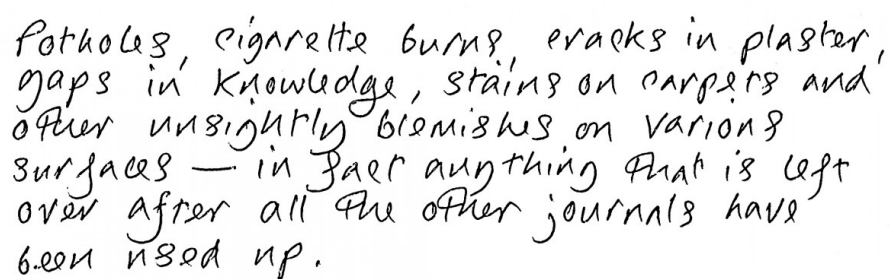 Potholes, cigarette burns, cracks in plaster,
gaps in knowledge, stains on carpets and
other unsightly blemishes on various
surfaces — in fact anything that is left
over after all the other journals have
been used up.